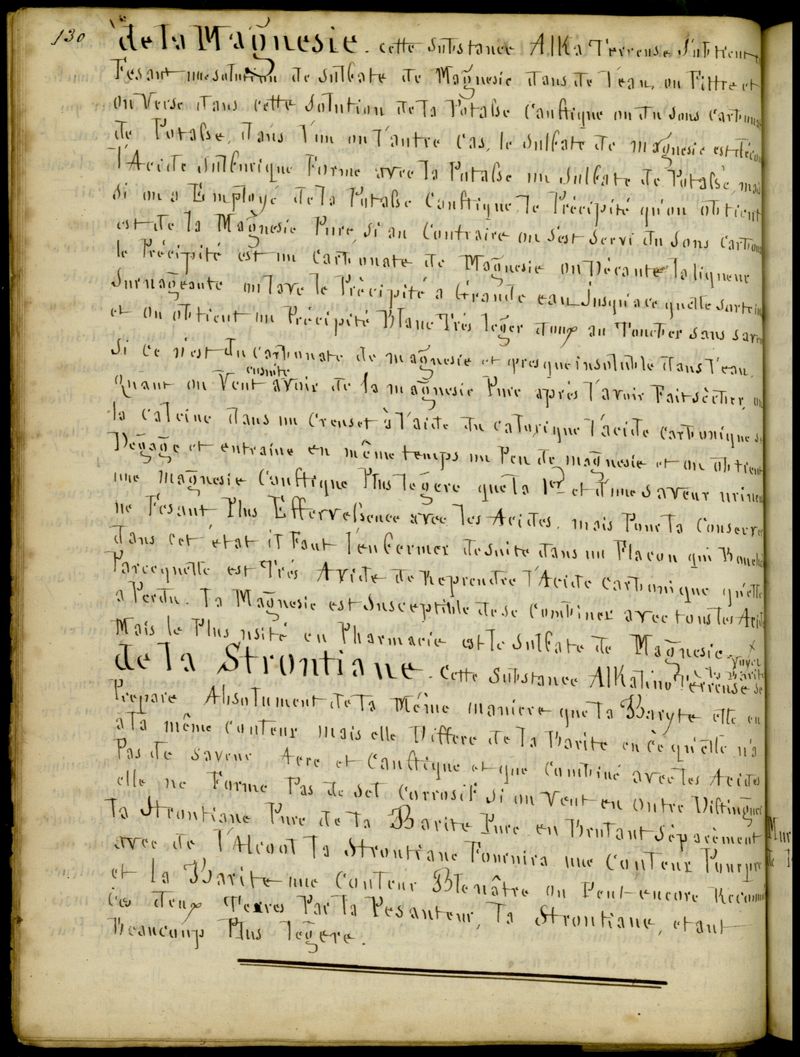 130
de la Magnesie. cette substance Alka Terreuse s'obtient
Fesant une solution de sulfate de Magnesie dans de l'eau, on Filtre et
on Verse dans cette solution de la Potasse Caustique ou du sous Carbonate
de Potasse, dans l'un ou l'autre Cas, le sulfate de magnesie est
l'Acide sulfurique Forme avec la Potasse un sulfate de Potasse, mais
si on a Employé de la Potasse Caustique le Précipité qu'on obtient
est de la Magnesie Pure, si au Contraire on s'est servi du sous Carbonate
le Précipité est un Carbonate de Magnesie on Décante la liqueur
surnageante on lave le Précipité a Grande eau Jusqu'a ce quelle sorte
et on obtient un Précipité Blanc Trés leger doux au Toucher sans sav
si ce n'est du Carbonate de magnesie et presque insoluble dans l'eau.
ensuite
Quant on Veut avoir de la magnesie Pure aprés l'avoir Fait sècher on
la Calcine dans un Creuset à l'aide du calorique l'acide Carbonique se
Degage et entraine en même temps un Peu de magnesie et on obtient
une magnesie Caustique Plus legere que la 1re et d'une saveur
ne Fesant Plus Effervessence avec les Acides. mais Pour la Conserver
dans cet, etat il Faut l'enfermer de suite dans un Flacon qui Bouche
Parcequelle est Trés Avide de Reprendre l'Acide Carbonique qu'elle
a Perdu. la Magnesie est susceptible de se Combiner avec tous les Acides
Mais le Plus usité en Pharmacie est le sulfate de Magnesie. x
de la Strontiane. Cette substance Alkalino Terreuse se
Prepare Absolument de la Même maniere que la Baryte elle en
a la même Couleur mais elle Differe de la Barite en ce qu'elle n'a
Pas de saveur Acre et Caustique et que Combiné avec les Acides
elle ne Forme Pas de sel Corrosif si on Veut en outre Distinguer
la Strontiane Pure de la Barite Pure en Brulant séparement
avec de l'Alcool la Strontiane Fournira une Couleur Pourpre
et la Barite une Couleur Bleuâtre on Peut encore Reconnoi
Ces deux Terres Par la Pesanteur, la Strontiane, etant
Beaucoup Plus legere.